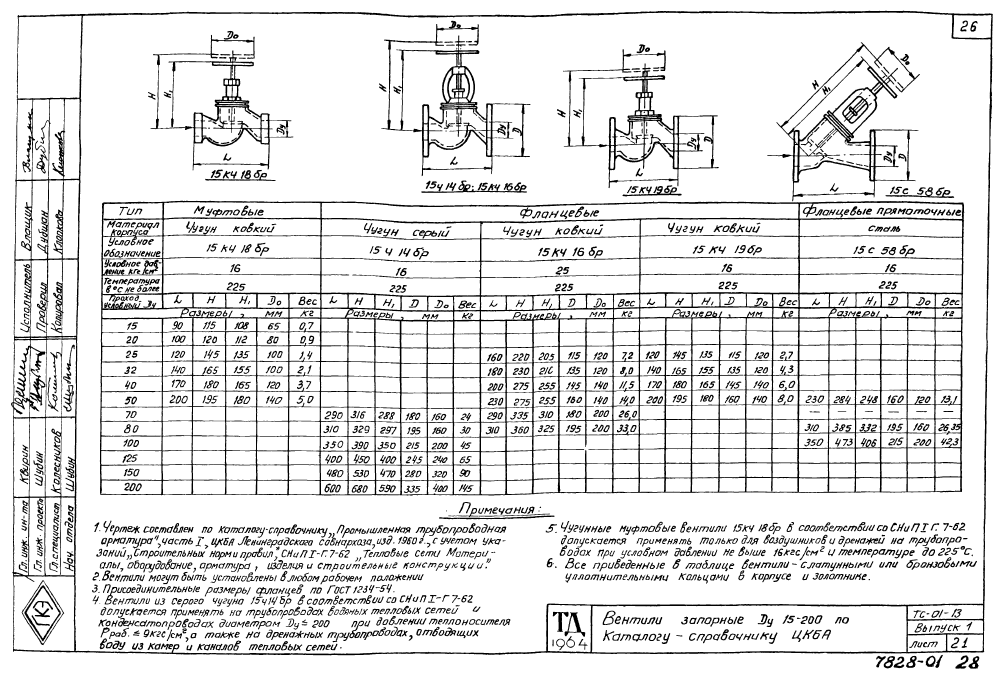 26
Dо
H
H₁
Dу
L
15 кч 18 бр
Dо
H
H₁
Dу
D
L
15ч 14 бр; 15кч 16 бр
Dо
H
H₁
Dу
D
L
15 кч 19 бр
Dо
H
H₁
Dу
D
L
15 с 58 бр
Тип | Муфтовые | Фланцевые | Фланцевые прямоточные
Материал корпуса | Чугун ковкий | Чугун серый | Чугун ковкий | Чугун ковкий | сталь
Условное обозначение | 15 кч 18 бр | 15 ч 14 бр | 15 кч 16 бр | 15 кч 19 бр | 15 с 58 бр
Условное давление кгс/см² | 16 | 16 | 25 | 16 | 16
Температура в °С не более | 225 | 225 | 225 | 225 | 225
Проход условный Dу | L | H | H₁ | Dо | Вес | L | H | H₁ | D | Dо | Вес | L | H | H₁ | D | Dо | Вес | L | H | H₁ | D | Dо | Вес | L | H | H₁ | D | Dо | Вес
Размеры, мм | кг | Размеры, мм | кг | Размеры, мм | кг | Размеры, мм | кг | Размеры, мм | кг
15 | 90 | 115 | 108 | 65 | 0,7
20 | 100 | 120 | 112 | 80 | 0,9
25 | 120 | 145 | 135 | 100 | 1,4 | 160 | 220 | 205 | 115 | 120 | 7,2 | 120 | 145 | 135 | 115 | 120 | 2,7
32 | 140 | 165 | 155 | 100 | 2,1 | 180 | 230 | 210 | 135 | 120 | 8,0 | 140 | 165 | 155 | 135 | 120 | 4,3
40 | 170 | 180 | 165 | 120 | 3,7 | 200 | 275 | 255 | 145 | 140 | 11,5 | 170 | 180 | 165 | 145 | 140 | 6,0
50 | 200 | 195 | 180 | 140 | 5,0 | 230 | 275 | 255 | 160 | 140 | 14,0 | 200 | 195 | 180 | 160 | 140 | 8,0 | 230 | 284 | 248 | 160 | 120 | 13,1
70 | 290 | 316 | 288 | 180 | 160 | 24 | 290 | 335 | 310 | 180 | 200 | 26,0 | — | — | — | — | — | —
80 | 310 | 329 | 297 | 195 | 160 | 30 | 310 | 360 | 325 | 195 | 200 | 33,0 | 310 | 385 | 332 | 195 | 160 | 26,35
100 | 350 | 390 | 350 | 215 | 200 | 45 | 350 | 473 | 406 | 215 | 200 | 42,3
125 | 400 | 450 | 400 | 245 | 240 | 65
150 | 480 | 530 | 470 | 280 | 320 | 90
200 | 600 | 680 | 590 | 335 | 400 | 145
Примечания:
1. Чертеж составлен по каталогу-справочнику „Промышленная трубопроводная
арматура", часть I, ЦКБА Ленинградского совнархоза, изд. 1960 г., с учетом ука-
заний „Строительных норм и правил", СНиП I-Г.7-62 „Тепловые сети Матери-
алы, оборудование, арматура, изделия и строительные конструкции."
2. Вентили могут быть установлены в любом рабочем положении
3. Присоединительные размеры фланцев по ГОСТ 1234-54.
4. Вентили из серого чугуна 15ч14бр в соответствии со СНиП I-Г 7-62
допускается применять на трубопроводах водяных тепловых сетей и
конденсатопроводах диаметром Dу ≤ 200 при давлении теплоносителя
Рраб. ≤ 9кгс/см², а также на дренажных трубопроводах, отводящих
воду из камер и каналов тепловых сетей.
5. Чугунные муфтовые вентили 15кч 18 бр в соответствии со СНиП I Г. 7-62
допускается применять только для воздушников и дренажей на трубопро-
водах при условном давлении не выше 16кгс/см² и температуре до 225°С.
6. Все приведенные в таблице вентили - с латунными или бронзовыми
уплотнительными кольцами в корпусе и золотнике.
ТД
1964
Вентили запорные Dу 15-200 по
Каталогу - справочнику ЦКБА
ТС-01-13
Выпуск 1
лист 21
7828-01 28
Исполнитель Влащик
Проверил Дубиан
Копировал Клокова
Гл. инж. ин-та Кварин
Гл. инж. проекта Шубин
Гл. специалист Колесников
Нач. отдела Шубин